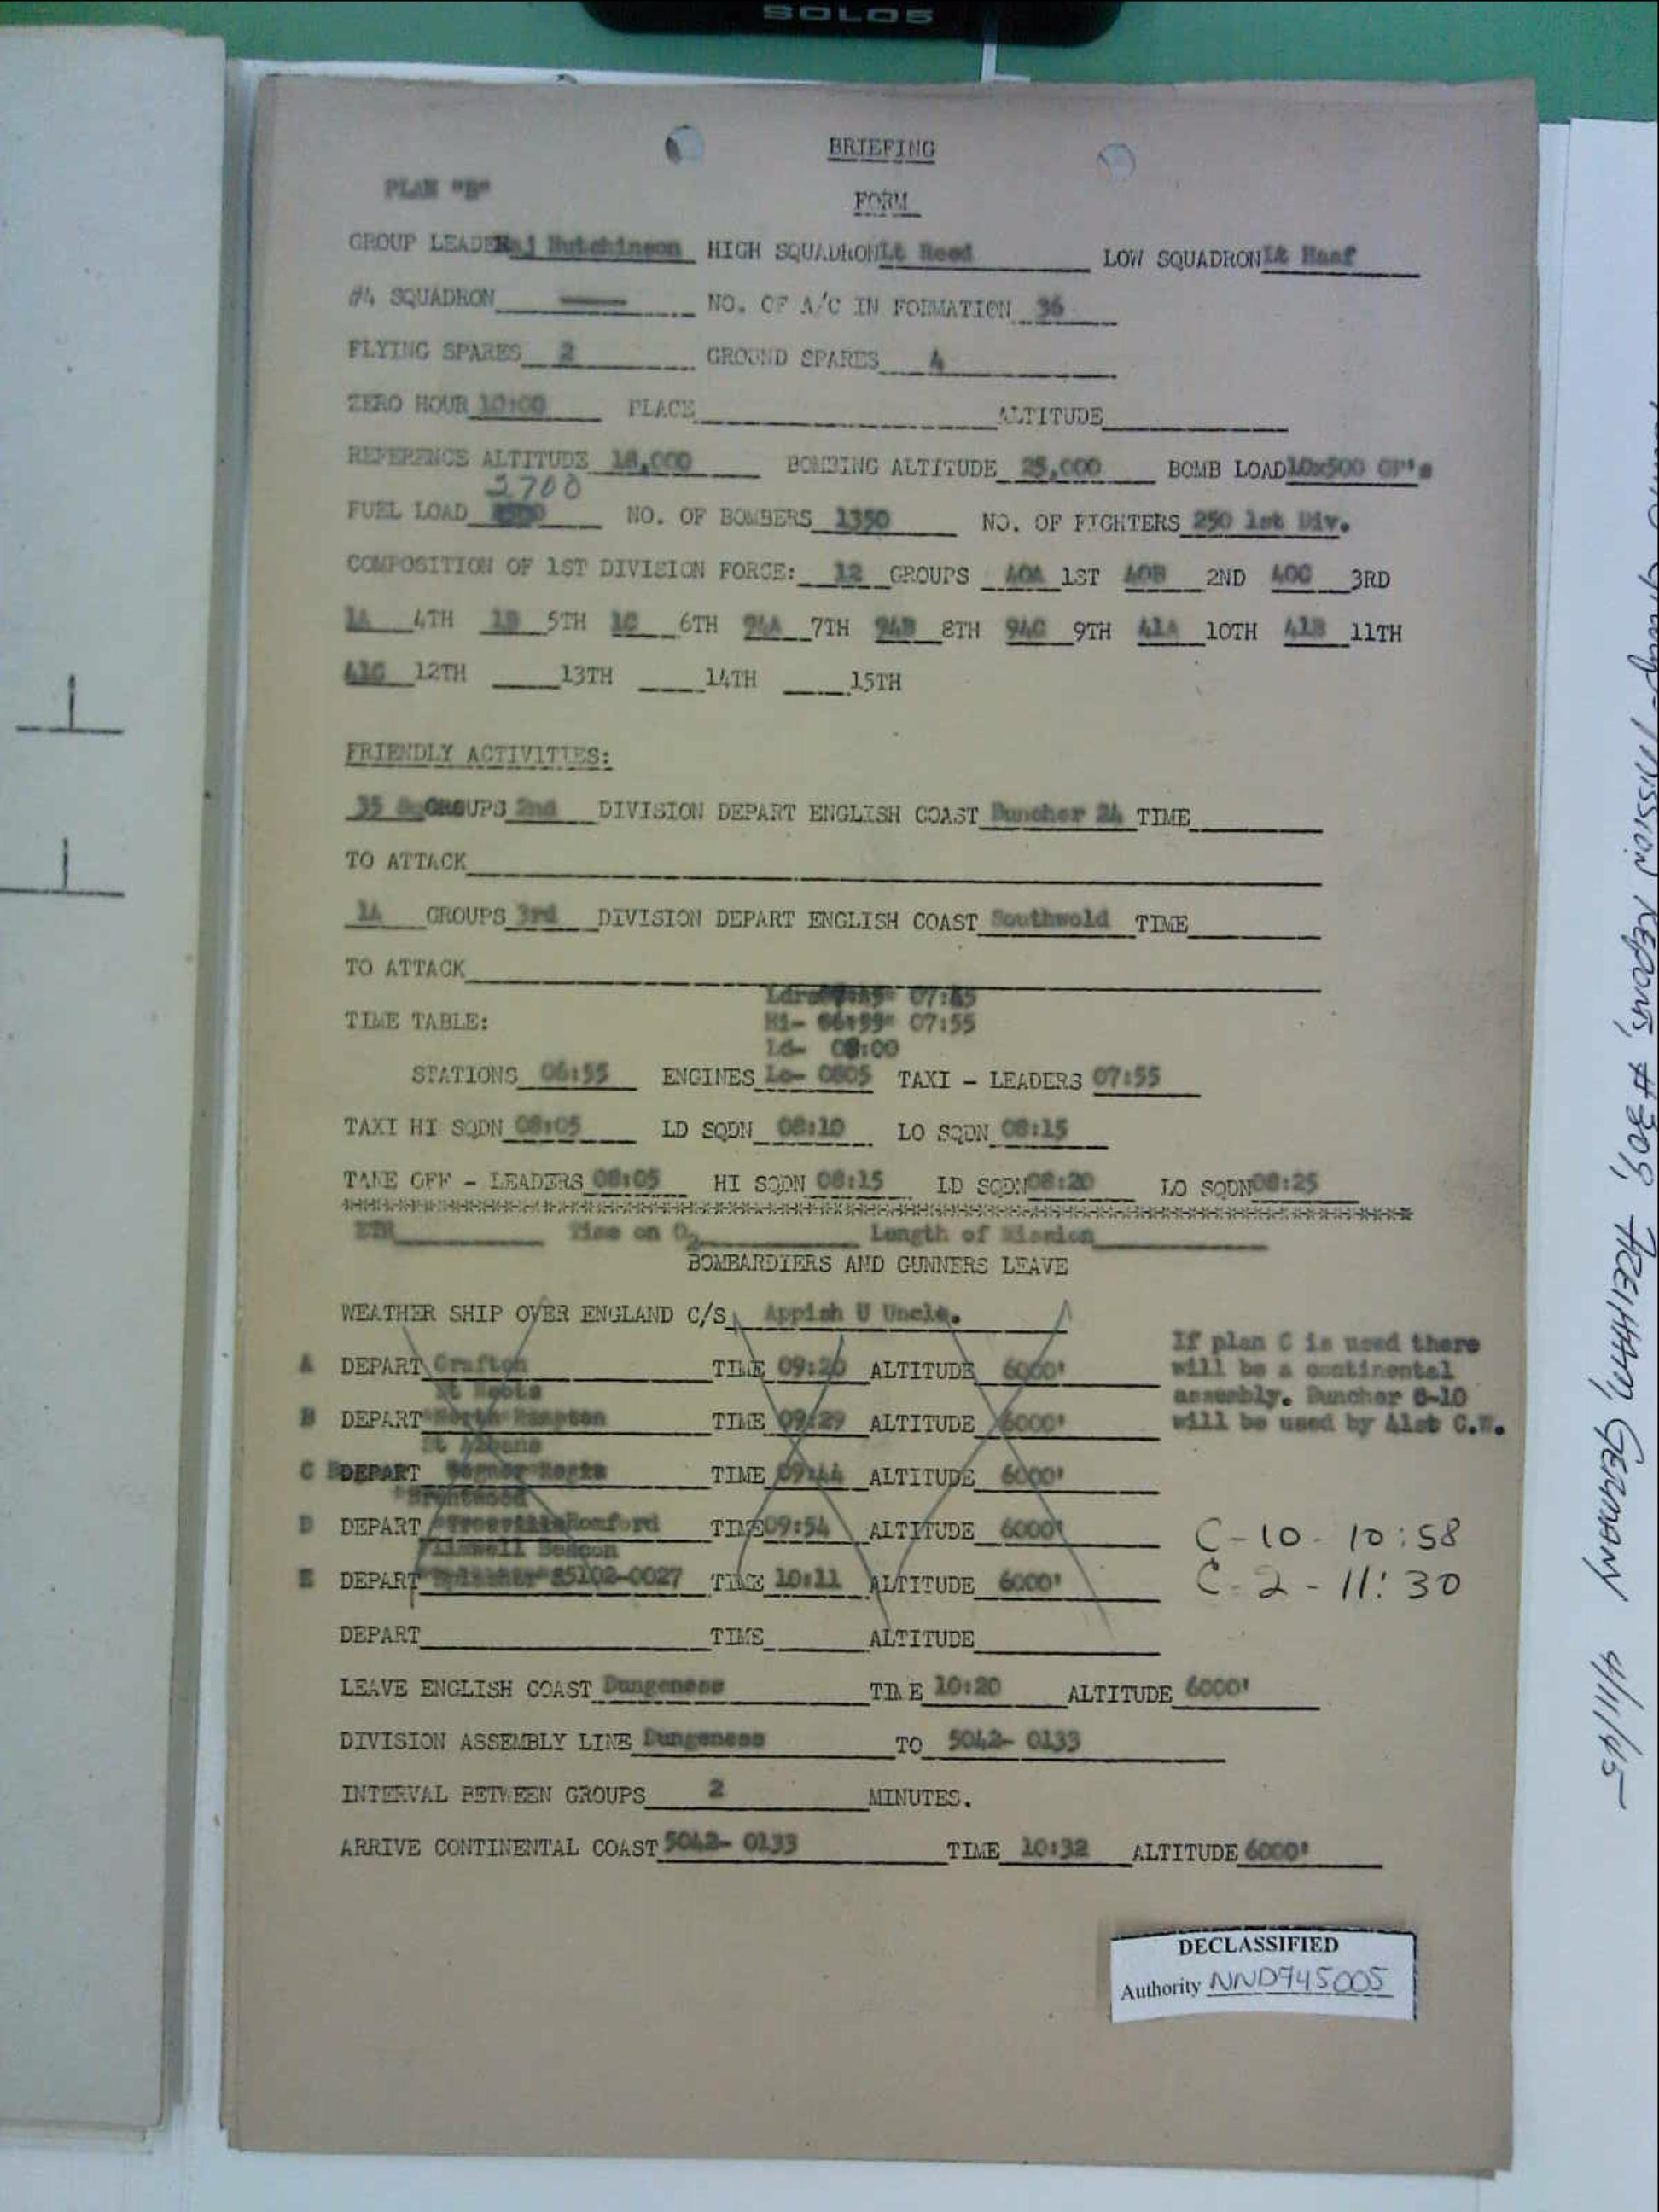 SOLO5
BRIEFING
PLAN "B"
FORM
GROUP LEADER Maj Hutchinson HIGH SQUADRON Lt Reed LOW SQUADRON Lt Haaf
#4 SQUADRON NO. OF A/C IN FORMATION 36
FLYING SPARES 2 GROUND SPARES 4
ZERO HOUR 10:00 PLACE ALTITUDE
REFERENCE ALTITUDE 18,000 BOMBING ALTITUDE 25,000 BOMB LOAD 10x500 GP's
2700
FUEL LOAD NO. OF BOMBERS 1350 NO. OF FIGHTERS 250 1st Div.
COMPOSITION OF 1ST DIVISION FORCE: 12 GROUPS 40A 1ST 40B 2ND 40C 3RD
1A 4TH 1B 5TH 1C 6TH 94A 7TH 94B 8TH 94C 9TH 41A 10TH 41B 11TH
41C 12TH 13TH 14TH 15TH
FRIENDLY ACTIVITIES:
35 Sq GROUPS 2nd DIVISION DEPART ENGLISH COAST Buncher 24 TIME
TO ATTACK
14 GROUPS 3rd DIVISION DEPART ENGLISH COAST Southwold TIME
TO ATTACK
Ldrs 07:45
TIME TABLE: Hi- 07:55
Ld- 08:00
STATIONS 06:55 ENGINES Lo- 0805 TAXI - LEADERS 07:55
TAXI HI SQDN 08:05 LD SQDN 08:10 LO SQDN 08:15
TAKE OFF - LEADERS 08:05 HI SQDN 08:15 LD SQDN 08:20 LO SQDN 08:25
ETR Time on O2 Length of Mission
BOMBARDIERS AND GUNNERS LEAVE
WEATHER SHIP OVER ENGLAND C/S Appish U Uncle.
A DEPART Grafton TIME 09:20 ALTITUDE 6000'
St Neots
B DEPART TIME 09:29 ALTITUDE 6000'
St Albans
C DEPART TIME 09:44 ALTITUDE 6000'
Brentwood
D DEPART Romford TIME 09:54 ALTITUDE 6000'
Beacon
E DEPART 5102-0027 TIME 10:11 ALTITUDE 6000'
DEPART TIME ALTITUDE
If plan C is used there
will be a continental
assembly. Buncher 8-10
will be used by 41st C.W.
C-10 - 10:58
C-2 - 11:30
LEAVE ENGLISH COAST Dungeness TIME 10:20 ALTITUDE 6000'
DIVISION ASSEMBLY LINE Dungeness TO 5042- 0133
INTERVAL BETWEEN GROUPS 2 MINUTES.
ARRIVE CONTINENTAL COAST 5042- 0133 TIME 10:32 ALTITUDE 6000'
DECLASSIFIED
Authority NND945005
Group-Mission Reports, #309, FREIHAM, GERMANY 4/11/45